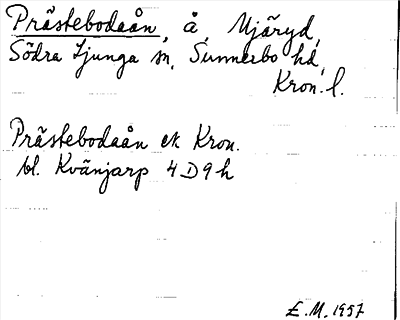 Prästebodaån, å, Mjäryd,
Södra Ljunga sn, Sunnerbo hd,
Kron. l.
Prästebodaån ek Kron.
bl. Kvänjarp 4D9h
E.M. 1957